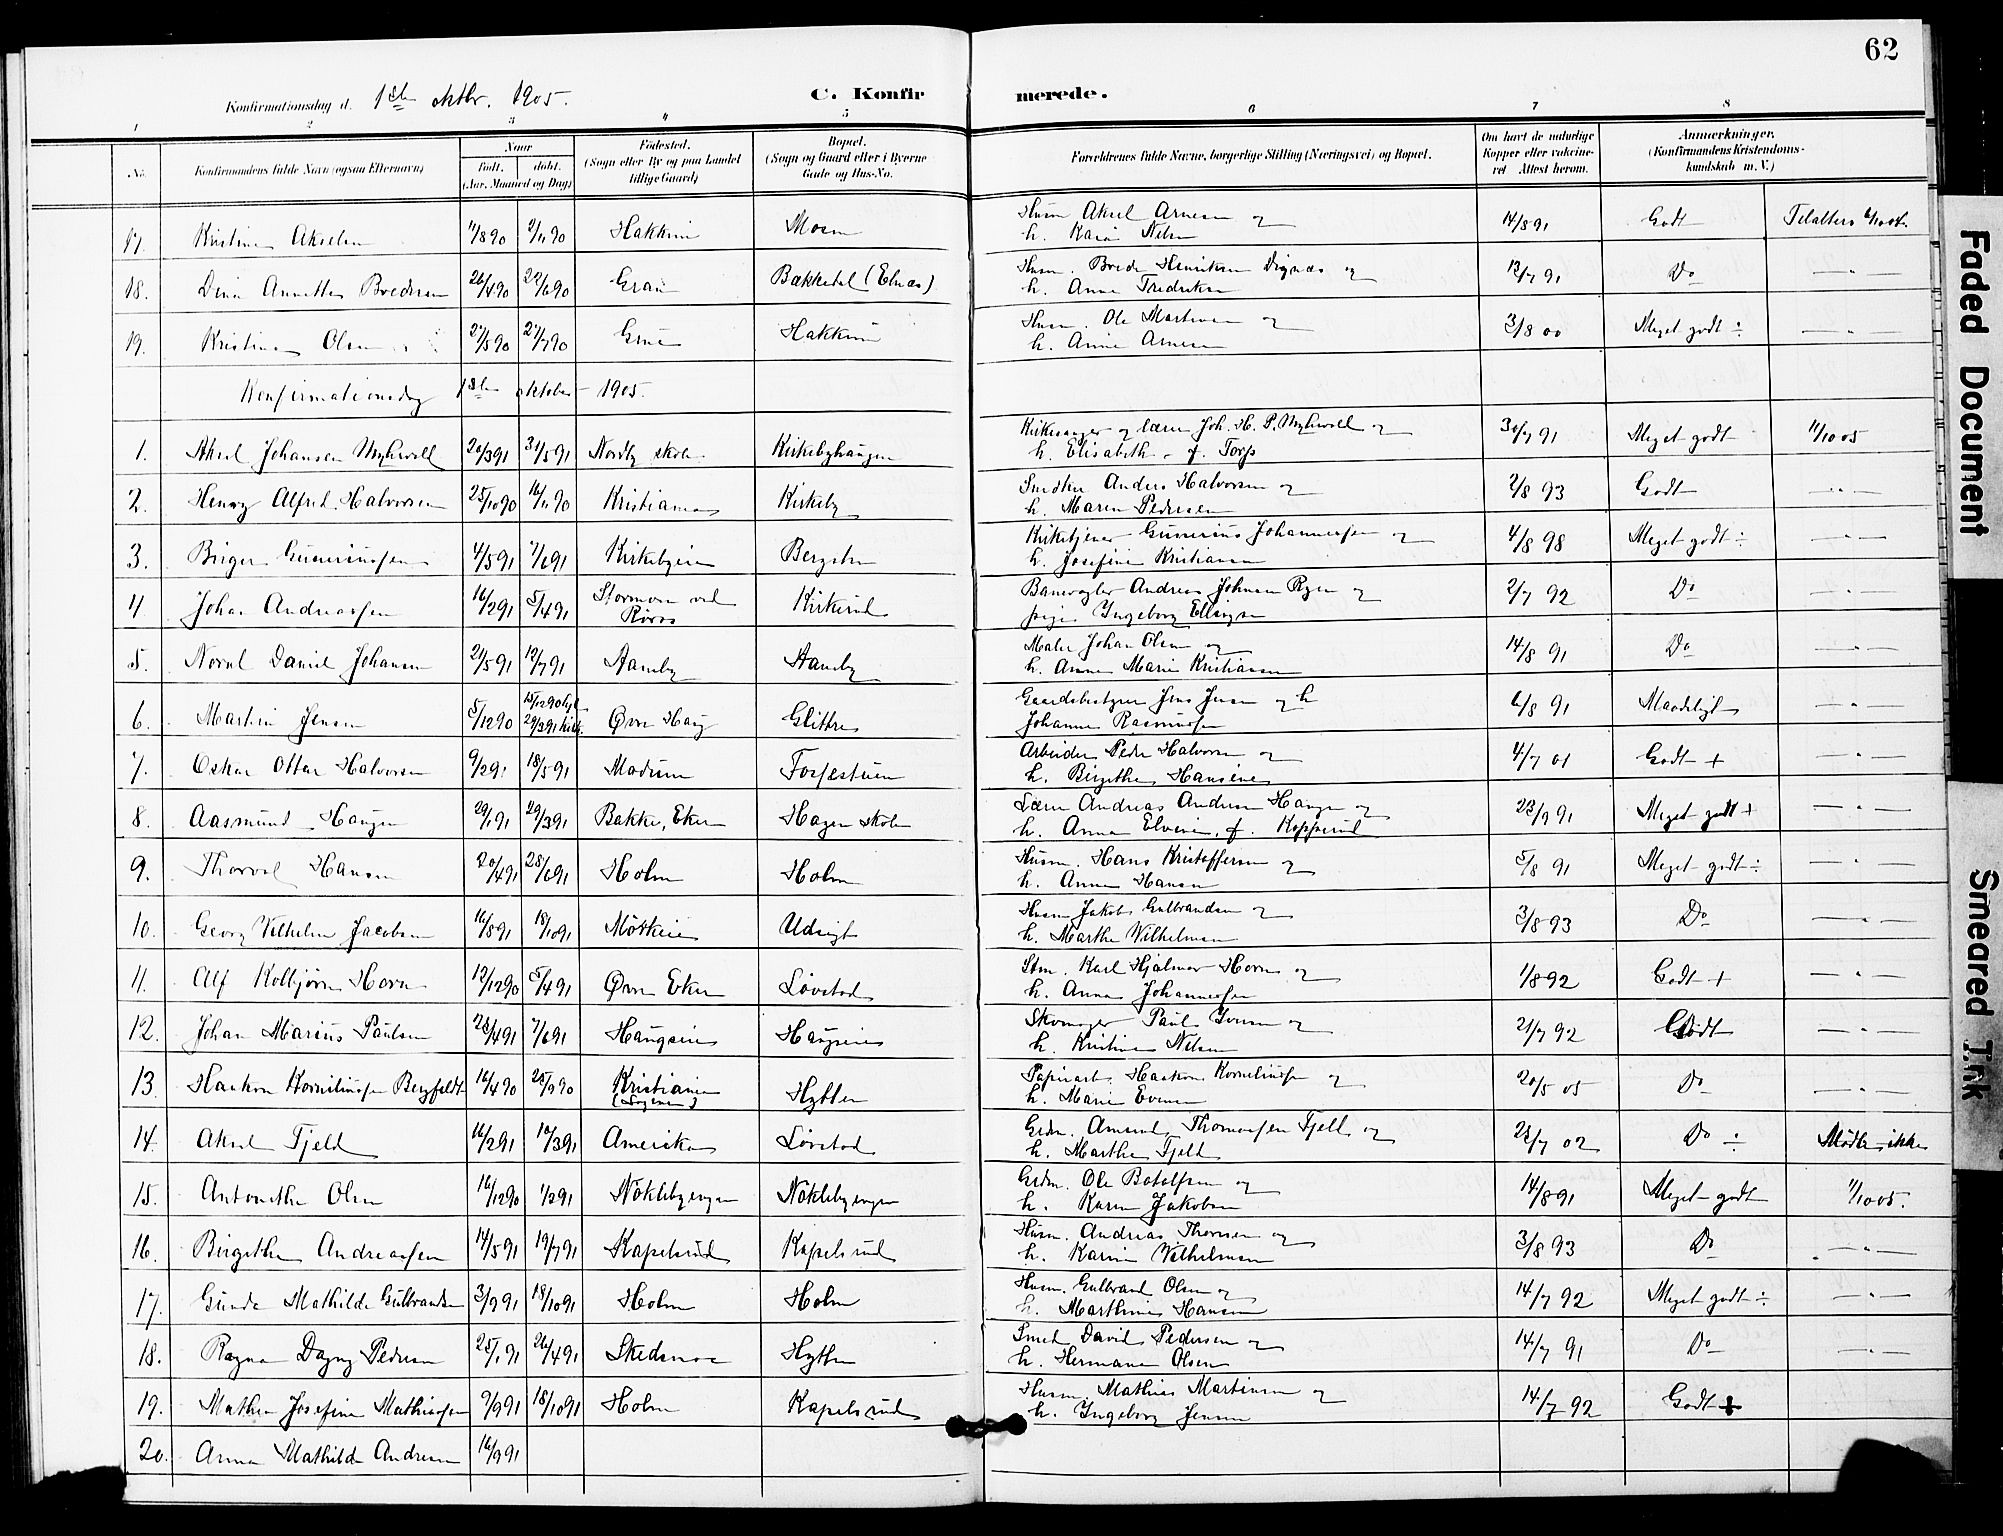 62
Konfirmationsdag d. 1ste oktbr. 1905.
C. Konfirmerede.
1 2 3 4 5 6 7 8
No. Konfirmandens fulde Navn (ogsaa Efternavn) Naar födt. döbt. (Aar, Maaned og Dag) Födested. (Sogn eller By og paa Landet tillige Gaard) Bopæl. (Sogn og Gaard eller i Byerne Gade og Hus-No. Forældrenes fulde Navne, borgerlige Stilling (Næringsvei) og Bopæl. Om havt de naturlige Kopper eller vaccineret. Attest herom. Anmærkninger. (Konfirmandens Kristendomskundskab m. V.)
17. Kristine Akselsen 11/8 90 2/11 90 Hakkim Moen Husm Aksel Arnesen og h. Karen Nilsen 14/8 91 Godt
18. Dina Annette Bredesen 26/4 90 22/6 90 Gran Bakketel (Elnæs) Husm. Brede Henriksen Dignæs og h. Anne Fredriksen 12/7 91 Do — " —
19. Kristine Olsen 21/5 90 27/7 90 Hakkim Husm. Ole Martinsen og h. Anne Arnesen 3/8 00 Meget godt ÷ — " —
Konfirmationsdag 1ste oktober 1905.
1. Aksel Johansen Myhrvoll 20/3 91 31/5 91 Nordby skole Kirkebyhaugen Kirkesanger og lærer Joh. H. P. Myhrvoll og h. Elisabeth f. Torp 30/7 91 Meget godt 1/10 05
2. Henry Alfred Halvorsen 25/10 90 16/11 90 Kristiania Kirkeby Snedker Anders Halvorsen og h. Maren Pedersen 2/8 93 Godt — " —
3. Birger Gunerinssen 4/5 91 7/6 91 Kirkebyeie Kirketjener Gunerius Johannessen og h. Josefine Kristiansen 4/8 98 Meget godt ÷ — " —
4. Johan Andreassen 16/2 91 5/4 91 Stormoen ved Röros Kirkerud Banevogter Andreas Johnsen Ryen og pige Ingeborg Ellingsen 2/7 92 Do — " —
5. Norval Daniel Johansen 21/5 91 12/7 91 Aamby Aamby Maler Johan Olsen og h. Anne Marie Kristiansen 14/8 91 Do — " —
6. Martin Jensen 5/12 90 15/12 90 hjd. 29/3 91 kirk. Øvre Haug Glittre Gaardsbestyrer Jens Jensen og h Johanne Rasmussen 6/8 91 Maadeligt — " —
7. Oskar Ottar Halvorsen 9/2 91 18/5 91 Modum Fossestuen Arbeider Peder Halvorsen og h. Birgithe Hansine 4/7 01 Godt + — " —
8. Aasmund Haugen 29/1 91 29/3 91 Bakke, Eker Hagen skole Lærer Andreas Andersen Haugen og h. Anna Elvine, f. Kopperud 23/9 91 Meget godt + — " —
9. Thorval Hansen 20/4 91 28/6 91 Holm Holm Husm. Hans Kristoffersen og h. Anne Hansen 5/8 91 Meget godt ÷ — " —
10. Georg Vilhelm Jacobsen 16/8 91 18/10 91 Udsigt Husm Jakob Gulbrandsen og h. Marthe Vilhelmsen 3/8 93 Do — " —
11. Alf Kolbjørn Horn 12/12 90 5/4 91 Øvre Eker Løvstad Stm. Karl Hjalmar Horn og h. Anna Johannessen 1/8 92 Godt + — " —
12. Johan Marius Paulsen 23/4 91 7/6 91 Haugseie Haugseie Skomager Paul Iversen og h. Kristine Nilsen 21/7 92 Godt — " —
13. Haakon Korneliussen Bergfeldt 16/4 90 28/9 90 Kristiania Hytten Papirarb. Haakon Korneliussen og h. Marie Evensen 20/5 05 Do — " —
14. Aksel Fjeld 16/2 91 10/3 91 Amerika Løvstad Grdm. Amund Thomassen Fjeld og h. Marthe Fjeld 28/7 02 Do ÷ Mødte ikke
15. Antonethe Olsen 16/12 90 1/2 91 Nöklebyengen Nöklebyengen Grdm. Ole Botolfsen og h. Karen Jakobsen 14/8 91 Meget godt 1/10 05.
16. Birgithe Andreassen 14/5 91 19/7 91 Kapelsrud Kapelsrud Husm. Andreas Thoresen og h. Karin Vilhelmsen 3/8 93 Do — " —
17. Gunda Mathilde Gulbrandsen 3/9 91 18/10 91 Holm Holm Husm. Gulbrand Olsen og h. Marthine Hansen 14/7 92 Meget godt ÷ — " —
18. Ragna Dagny Pedersen 25/1 91 26/4 91 Skedsmoe Hytten Smed David Pedersen og h. Hermane Olsen 14/7 91 Do — " —
19. Mathea Josefine Mathiassen 9/9 91 18/10 91 Holm Kapelsrud Husm. Mathias Martinsen og h. Ingeborg Jensen 14/7 92 Godt +
20. Anna Mathilde Andresen 16/9 91
Faded Document
Smeared Ink